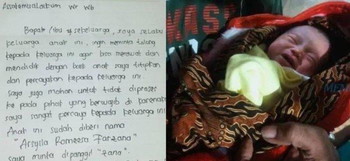 Assalamualaikum wr wb
Bapak / Ibu sekeluarga, saya selaku
keluarga anak ini, ingin meminta tolong
kepada keluarga ini agar bisa merawat dan
mendidik dengan baik anak yang titipkan
dan percayakan kepada keluarga ini
saya juga mohon untuk tidak diproses
ke pada pihak yang berwajib di karenakan
saya sangat percaya kepada keluarga ini
Anak ini sudah diberi nama
"Arsyila Romeesa Farzana"
saya minta dipanggil "Zana".
KAST